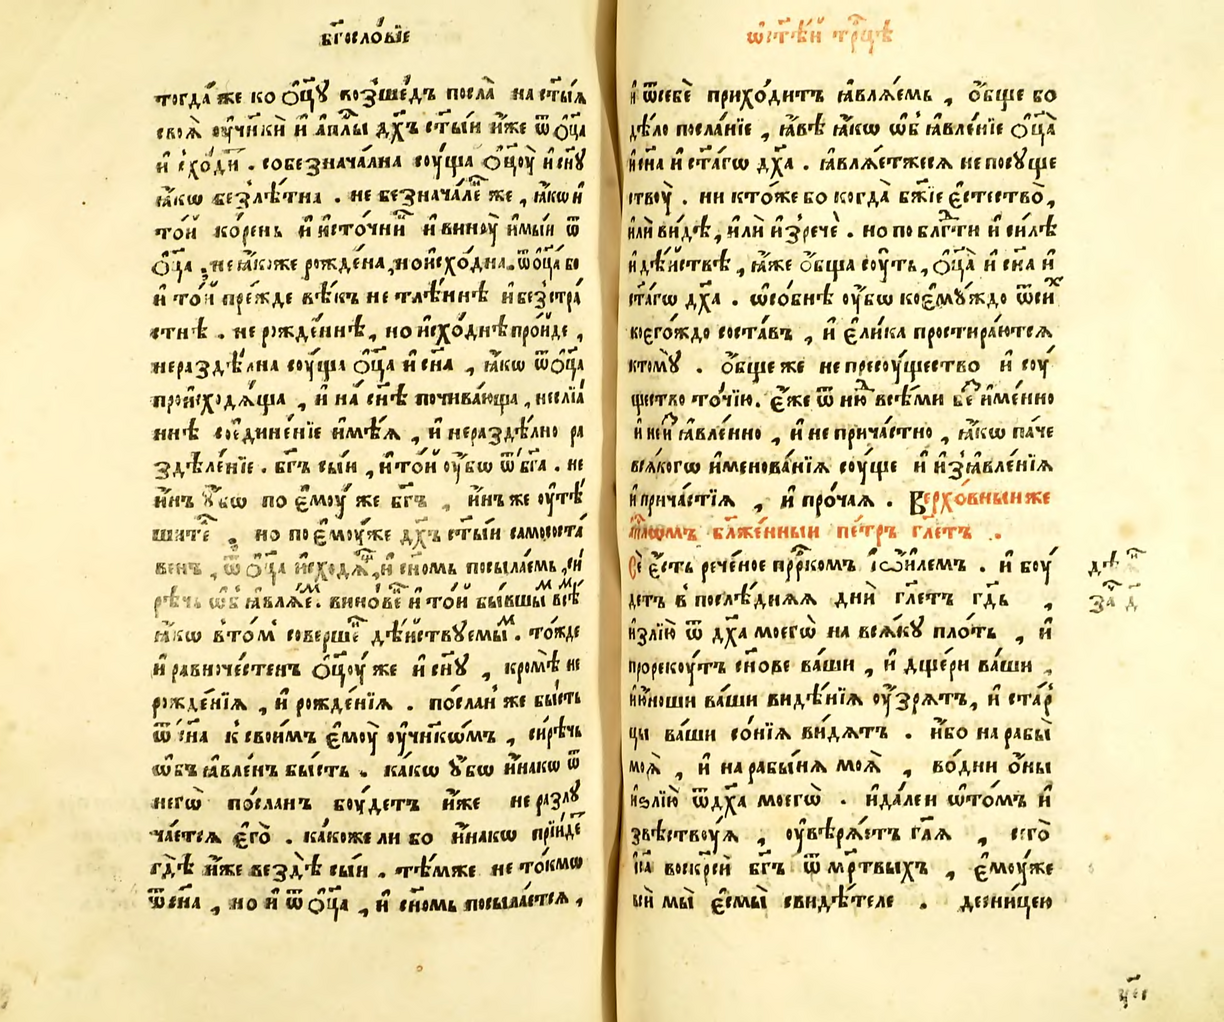 бг҃осло́вїе
тогда́ же ко ѻ҆ц҃ꙋ возше́дъ посла̀ на ст҃ы́ѧ
своѧ̀ оу҆чн҃кѝ и҆ а҆пⷭ҇лы дх҃ъ ст҃ы́и и҆́же ѿ ѻ҆ц҃а
и҆схо́ди . собезнача́лна соу́ща ѻ҆ц҃оу̀ и҆ сн҃ꙋ
ꙗ҆́кѡ безлѣ́тна . не безнача́леⷩ҇ же , ꙗ҆́кѡ и҆
то́й ко́рень и҆ и҆сто́чниⷦ҇ и҆ виноу̀ и҆мы́и ѿ
ѻ҆ц҃а , не ꙗ҆́коже рожде́на , но и҆схо́дна . ѿ ѻ҆ц҃а бо
и҆ то́й пре́жде вѣ́къ не тлѣ́ннѣ и҆ без̾стра́
стнѣ . не рожде́ннѣ , но и҆схо́днѣ про́йде ,
нераздѣ́лна соу́ща ѻ҆ц҃а и҆ сн҃а , ꙗ҆́кѡ ѿ ѻ҆ц҃а
происходѧ́ща , и҆ на сн҃ѣ почива́юща , неслїѧ́
ннѣ соедине́нїе и҆мѣ́ѧ , и҆ нераздѣ́лно ра
здѣле́нїе . бг҃ъ сы́и , и҆ то́й оу҆́бѡ ѿ бг҃а . не
и҆́нъ ᲂу҆́бѡ по є҆моу́ же бг҃ъ , и҆́нъ же оу҆тѣ́
шатеⷧ҇ , но по є҆моу́же дх҃ъ ст҃ы́и самососта́
венъ , ѿ ѻ҆ц҃а и҆сходѧ́ , и҆ сн҃омъ посыла́емь , си
рѣ́чь ѡ҆б̾ ꙗ҆влѧ́еⷨ . вино́веⷩ҇ и҆ то́й бы́вшыⷨ всѣⷨ
ꙗ҆́кѡ в̾то́м̾ соверше́ⷩ҇ дѣ́йствꙋемыⷨ . то́жде
и҆ равноче́стенъ ѻ҆ц҃оу́ же и҆ сн҃ꙋ , кро́мѣ не
рожде́нїѧ , и҆ рожде́нїѧ . по́слан̾ же бы́сть
ѿ сн҃а к̾ свои́мъ є҆моу̀ оу҆чн҃кѡ́мъ , си́рѣчь
ѡ҆б̾ꙗ҆вле́нъ бы́сть . ка́кѡ ᲂу҆́бѡ и҆́накѡ ѿ
негѡ̀ по́сланъ боу́детъ и҆́же не разлꙋ
ча́етсѧ є҆го̀ . ка́коже ли бо и҆́накѡ прїи́деⷮ
гдѣ̀ и҆́же вездѣ̀ сы́и . тѣ́мже не то́кмѡ
ѿ сн҃а , но и҆ ѿ ѻ҆ц҃а , и҆ сн҃омь посыла́етсѧ ,
ѡ҆ ст҃ѣ́й трⷪ҇цѣ
и҆ ѿ себѐ прихо́дитъ ꙗ҆влѧ́емь , ѻ҆́бще бо
дѣ́ло посла́нїе , ꙗ҆́вѣ ꙗ҆́кѡ ѡ҆б̾ ꙗ҆вле́нїе ѻ҆ц҃а̀
и҆ сн҃а и҆ ст҃а́гѡ дх҃а . ꙗ҆влѧ́етжесѧ не по сꙋще
ствоу̀ . ни кто́же бо когда̀ бж҃їе є҆стество̀ ,
и҆лѝ ви́дѣ , и҆лѝ и҆зречѐ . но по блгⷣти и҆ си́лѣ
и҆ дѣ́йствѣ , ꙗ҆́же ѻ҆́бща соу́ть , ѻ҆ц҃а̀ и҆ сн҃а и҆
ст҃а́гѡ дх҃а . ѡ҆со́бнѣ оу҆́бѡ коемꙋ́ждо ѿ сиⷯ
коего́ждо соста́въ , и҆ є҆ли́ка простира́ютсѧ
ктомꙋ̀ . ѻ҆́бще же не пресоу́щество и҆ соу́
щество то́чїю . є҆́же ѿ ню҆ всѣ́ми беⷥ и҆́менно
и҆ неⷪ҇ ꙗ҆вле́нно , и҆ не прича́стно , ꙗ҆́кѡ па́че
всѧ́когѡ и҆менова́нїѧ соу́ще и҆ и҆з̾ꙗ҆вле́нїѧ
и҆ прича́стїѧ , и҆ про́чаѧ . Верхо́вныи же
а҆пⷭ҇лѡмъ бл҃же́нныи пе́тръ гл҃етъ .
Сѐ є҆́сть рече́ное прⷪ҇ркомъ і҆ѡи́лемъ . и҆ боу́
детъ в̾ послѣ́днѧѧ днѝ гл҃етъ гдⷭ҇ь ,
и҆злїю̀ ѿ дх҃а моегѡ̀ на всѧ́кꙋ пло́ть , и҆
прорекоу́тъ сн҃ове ва́ши , и҆ дще́ри ва́ши ,
и҆ ю҆́ноши ва́ши видѣ́нїѧ оу҆́зрѧтъ , и҆ ста́р̾
цы ва́ши со́нїѧ ви́дѧтъ . и҆́бо на рабы̀
моѧ̀ , и҆ на рабы́нѧ моѧ̀ , во́дни ѻ҆́ны
и҆злїю̀ ѿ дх҃а моегѡ̀ . и҆ да́леи ѡ҆ то́мъ и҆
звѣствоу́ѧ , оу҆вѣрѧ́етъ гл҃ѧ , сего̀
і҆са воскрⷭ҇сѝ бг҃ъ ѿ мр҃твыхъ , є҆моу́же
всѝ мы̀ є҆смы̀ свидѣ́теле . десни́цею
дѣⷩ҇
за҃ д҃